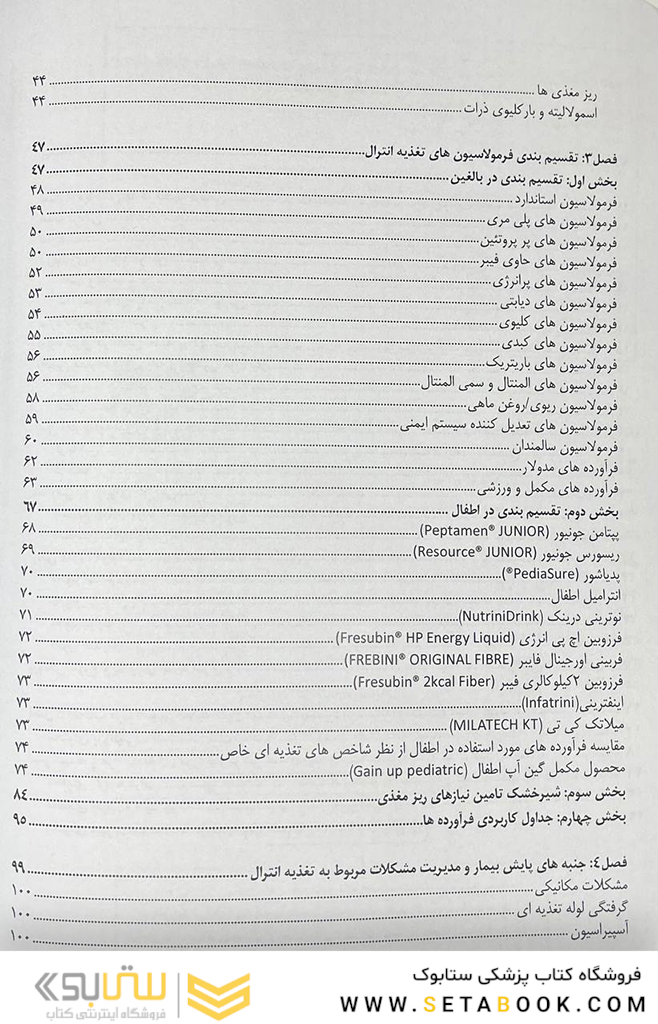 ریز مغذی ها ۴۴
اسمولالیته و بارکلیوی ذرات ۴۴
فصل۳: تقسیم بندی فرمولاسیون های تغذیه انترال ۴۷
بخش اول: تقسیم بندی در بالغین ۴۷
فرمولاسیون استاندارد ۴۸
فرمولاسیون های پلی مری ۴۹
فرمولاسیون های پر پروتئین ۵۰
فرمولاسیون های حاوی فیبر ۵۰
فرمولاسیون های پرانرژی ۵۲
فرمولاسیون های دیابتی ۵۳
فرمولاسیون های کلیوی ۵۴
فرمولاسیون های کبدی ۵۵
فرمولاسیون های باریتریک ۵۶
فرمولاسیون های المنتال و سمی المنتال ۵۶
فرمولاسیون ریوی/روغن ماهی ۵۸
فرمولاسیون های تعدیل کننده سیستم ایمنی ۵۹
فرمولاسیون سالمندان ۶۰
فرآورده های مدولار ۶۲
فرآورده های مکمل و ورزشی ۶۳
بخش دوم: تقسیم بندی در اطفال ۶۷
پپتامن جونیور (Peptamen® JUNIOR) ۶۸
ریسورس جونیور (Resource® JUNIOR) ۶۹
پدیاشور (PediaSure®) ۷۰
انترامیل اطفال ۷۰
نوترینی درینک (NutriniDrink) ۷۱
فرزوبین اچ پی انرژی (Fresubin® HP Energy Liquid) ۷۲
فربینی اورجینال فایبر (FREBINI® ORIGINAL FIBRE) ۷۲
فرزوبین ۲کیلوکالری فیبر (Fresubin® 2kcal Fiber) ۷۳
اینفترینی(Infatrini) ۷۳
میلاتک کی تی (MILATECH KT) ۷۳
مقایسه فرآورده های مورد استفاده در اطفال از نظر شاخص های تغذیه ای خاص ۷۴
محصول مکمل گین آپ اطفال (Gain up pediatric) ۷۴
بخش سوم: شیرخشک تامین نیازهای ریز مغذی ۸۴
بخش چهارم: جداول کاربردی فرآورده ها ۹۵
فصل۴: جنبه های پایش بیمار و مدیریت مشکلات مربوط به تغذیه انترال ۹۹
مشکلات مکانیکی ۱۰۰
گرفتگی لوله تغذیه ای ۱۰۰
آسپیراسیون ۱۰۰
فروشگاه کتاب پزشکی ستابوک
WWW.SETABOOK.COM
ستابوک
فروشگاه اینترنتی کتاب